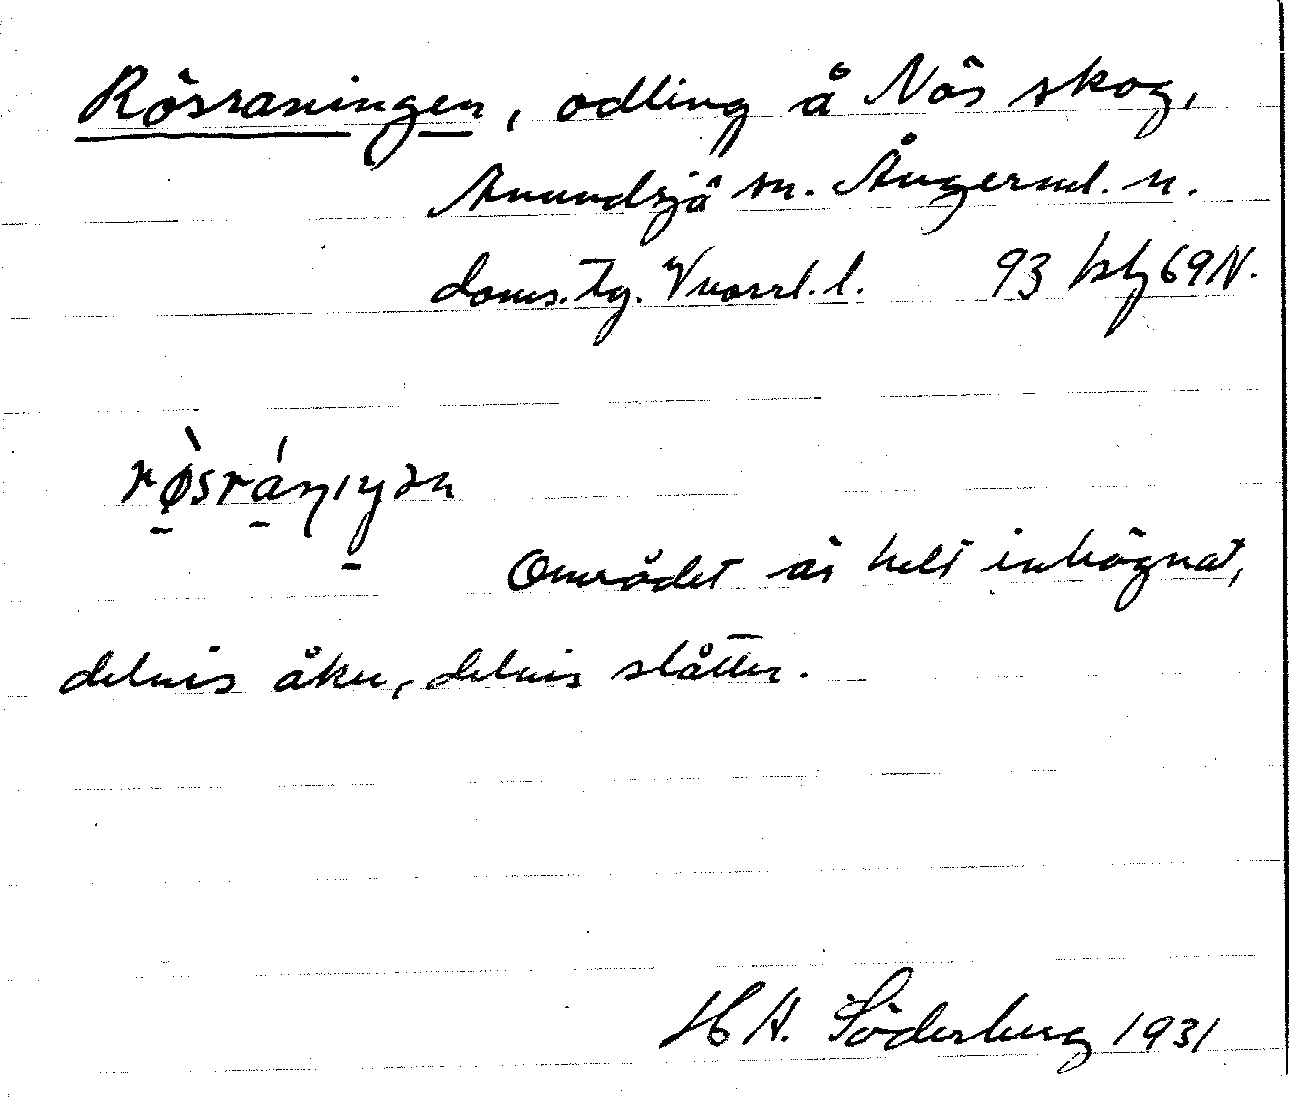 Rösraningen, odling å Näs skog,
Anundsjö sn. Ångerml. n.
doms. tg. Vnorrl. l. 93 blj 69 N.
røsrániŋən
Området är helt inhägnat,
delvis åker, delvis slåtter.
H A. Söderberg 1931